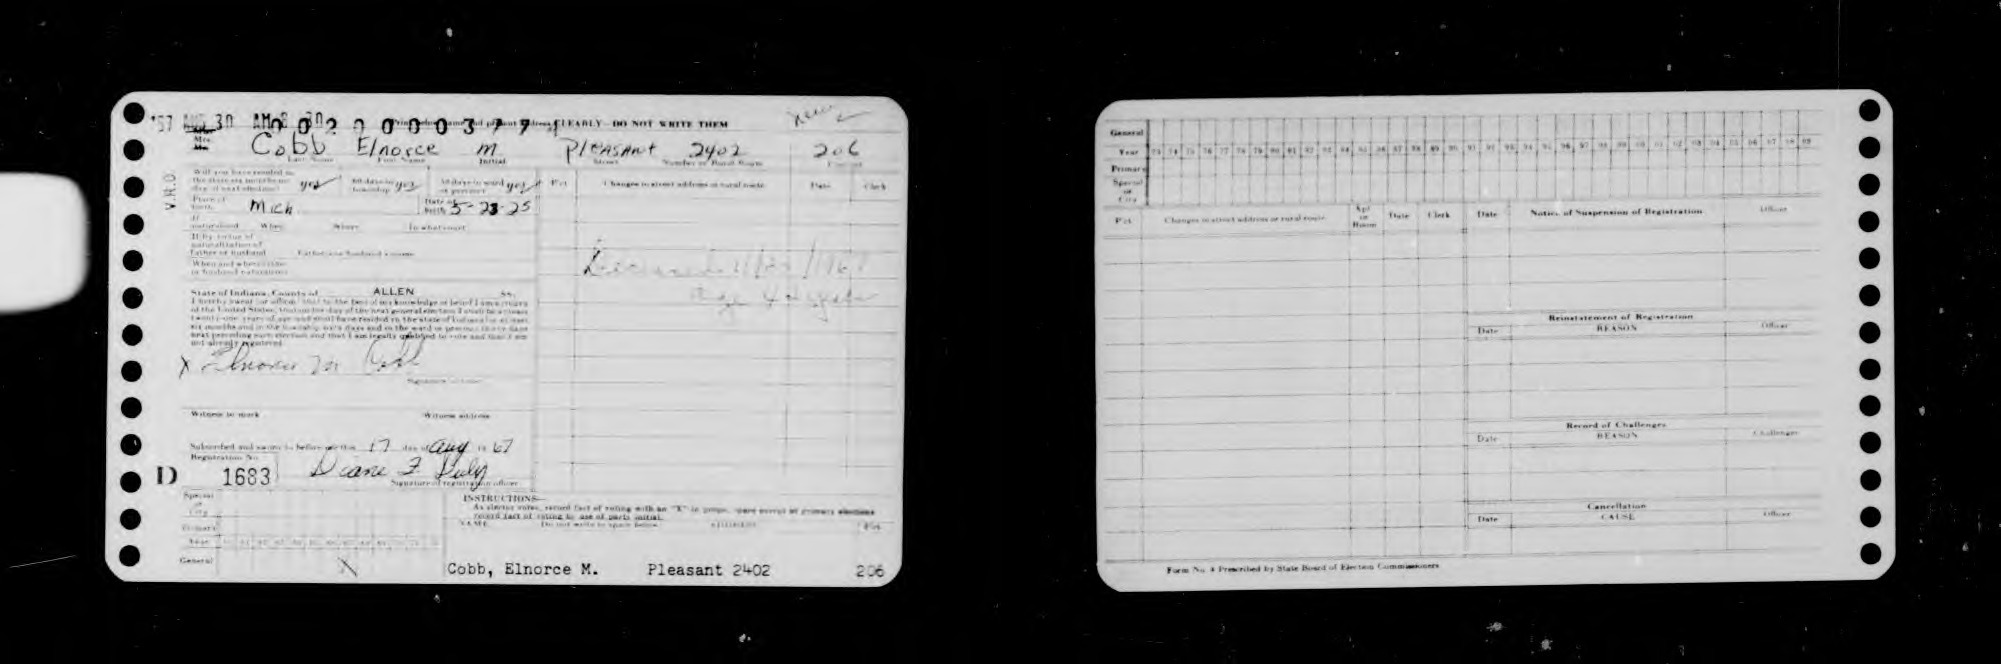 '57 AUG 30 AM 8 30 0020000377 CLEARLY - DO NOT WRITE THEM new
Mrs. Cobb Elnorce M Pleasant 2402 206
Last Name First Name Initial Street Number or Rural Route Precinct
V.R.O.
Will you have resided in the state six months on day of next election? yes 60 days in township yes 30 days in ward or precinct yes Pct. Changes in street address or rural route Date Clerk
Place of birth Mich Date of birth 5-23-25
If naturalized When Where In what court
If by virtue of
naturalization of
father or husband Father's or husband's name
When and where father
or husband naturalized
Deceased 11/24/1967
age 42 years
State of Indiana, County of ALLEN ss.
I hereby swear (or affirm) that to the best of my knowledge or belief I am a citizen
of the United States, that on the day of the next general election I shall be at least
twenty-one years of age and shall have resided in the state of Indiana for at least
six months and in the township sixty days and in the ward or precinct thirty days
next preceding such election and that I am legally qualified to vote and that I am
not already registered.
X Elnorce M Cobb
Signature in full
Witness to mark Witness address
Subscribed and sworn to before me this 17 day of Aug 19 67
Registration No.
D 1683 Diane F
Signature of registration officer
Special
or
City
Primary
Year
General X
INSTRUCTIONS—
As elector votes, record fact of voting with an "X" in proper space except at primary elections
record fact of voting by use of party initial.
NAME Do not write in space below ADDRESS Pct.
Cobb, Elnorce M. Pleasant 2402 206
General
Year 73 74 75 76 77 78 79 80 81 82 83 84 85 86 87 88 89 90 91 92 93 94 95 96 97 98 99 00 01 02 03 04 05 06 07 08 09
Primary
Special
or
City
Pct. Changes in street address or rural route Apt. or Room Date Clerk Date Notice of Suspension of Registration Officer
Reinstatement of Registration
Date REASON Officer
Record of Challenges
Date REASON Challenger
Cancellation
Date CAUSE Officer
Form No. 4 Prescribed by State Board of Election Commissioners